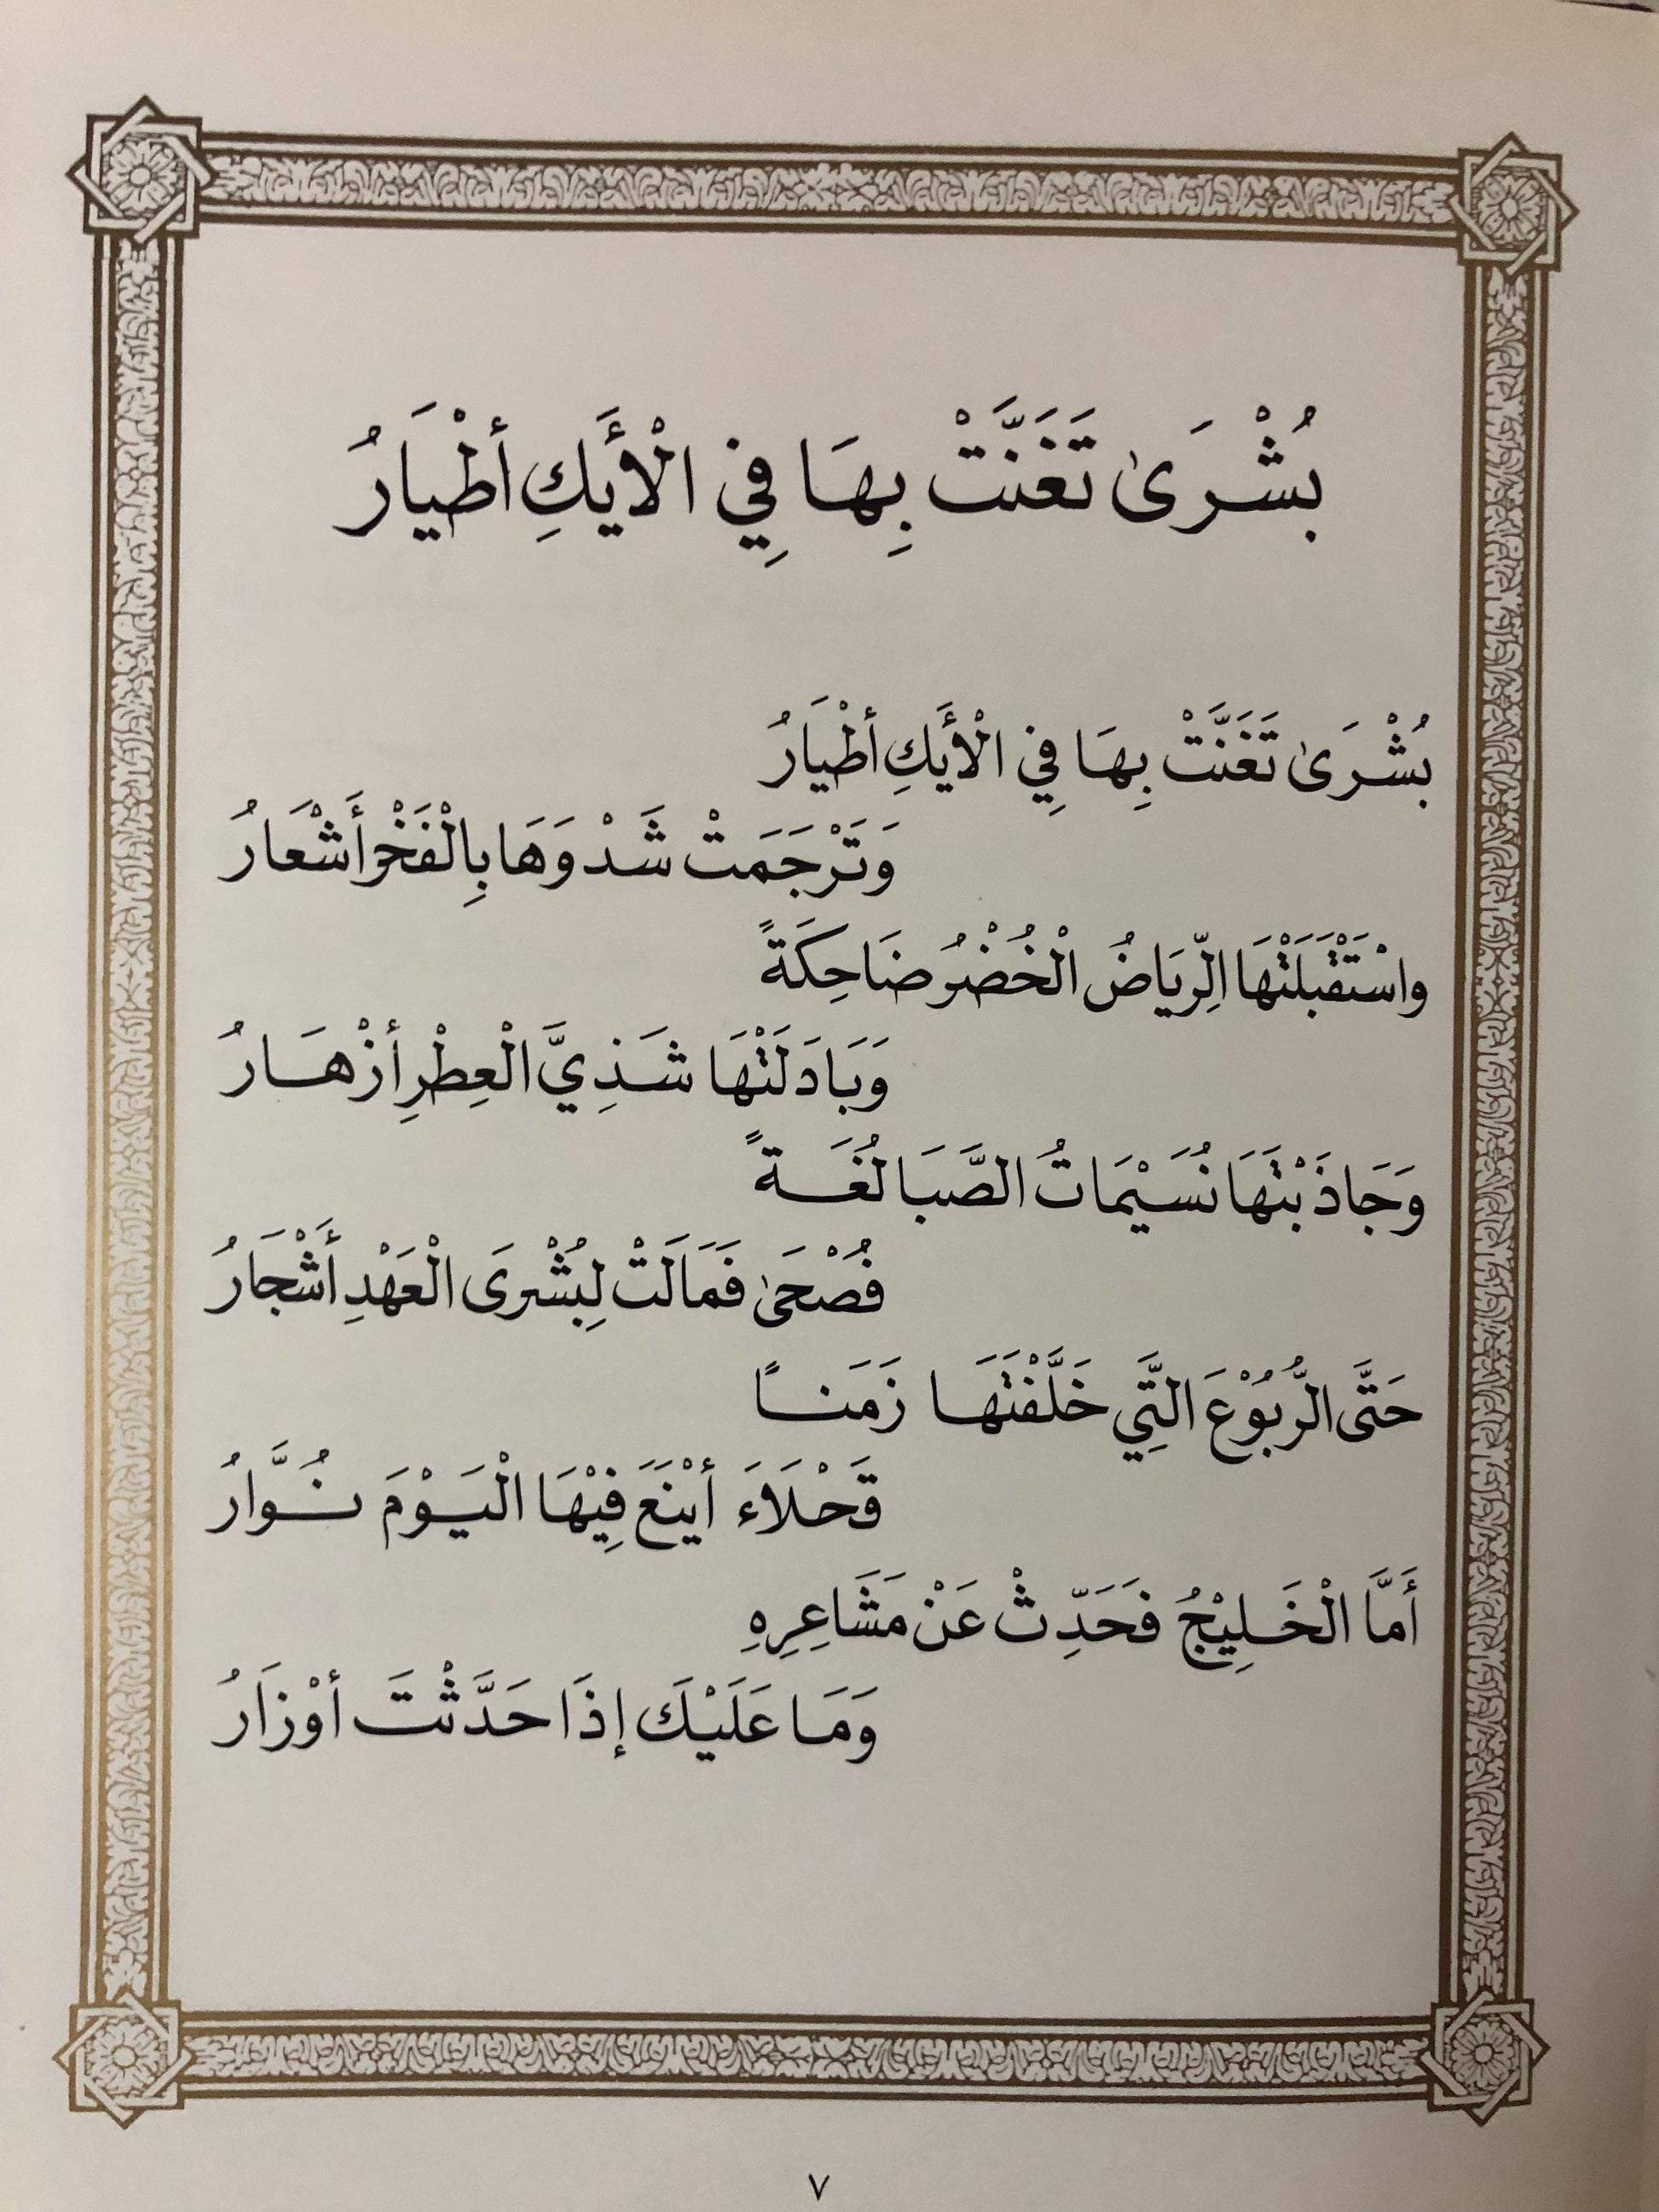 بُشْرَىٰ تَغَنَّتْ بِهَا فِي الْأَيكِ أطْيَارُ
بُشْرَىٰ تَغَنَّتْ بِهَا فِي الْأَيكِ أطْيَارُ
وَتَرْجَمَتْ شَدْوَهَا بِالْفَخْرِ أَشْعَارُ
واسْتَقْبَلَتْهَا الرِّيَاضُ الْخُضْرُ ضَاحِكَةً
وَبَادَلَتْهَا شَذِيَّ الْعِطْرِ أزْهَارُ
وَجَاذَبَتْهَا نُسَيْمَاتُ الصَّبَا لُغَةً
فُصْحَىٰ فَمَالَتْ لِبُشْرَى الْعَهْدِ أَشْجَارُ
حَتَّى الرُّبُوْعَ التَّيِ خَلَّفْتَهَا زَمَناً
قَحْلَاءَ أيْنَعَ فِيْهَا الْيَوْمَ نُوَّارُ
أَمَّا الْخَلِيْجُ فَحَدِّثْ عَنْ مَشَاعِرِهِ
وَمَا عَلَيْكَ إذَا حَدَّثْتَ أوْزَارُ
٧